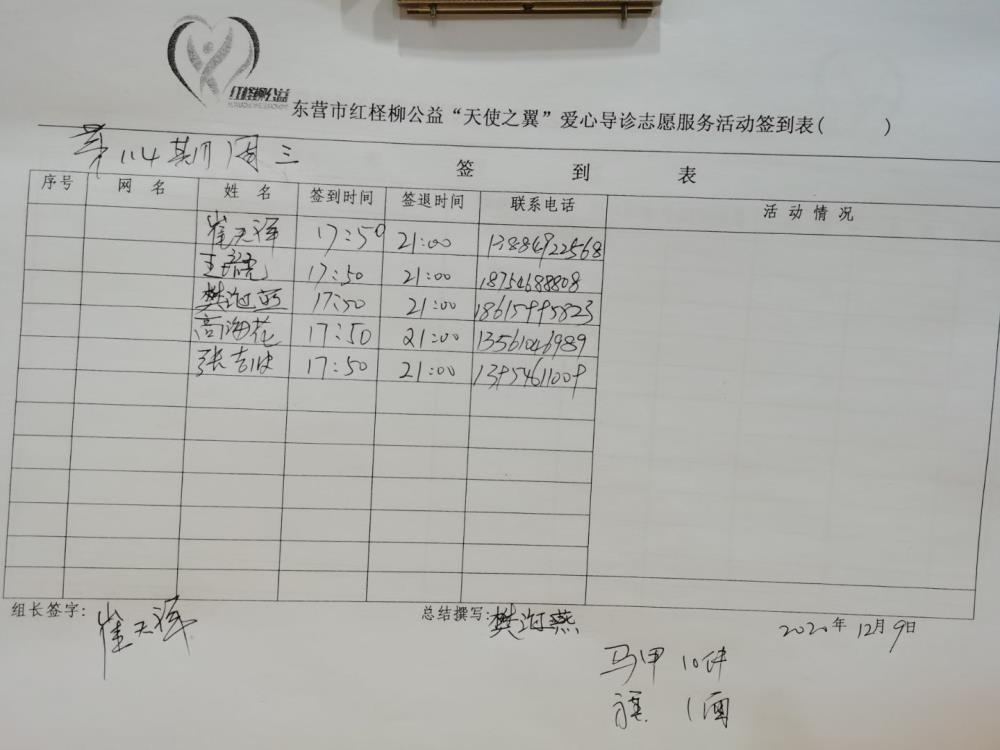 红柽柳公益
东营市红柽柳公益“天使之翼”爱心导诊志愿服务活动签到表( )
第114期 周三
签 到 表
序号 网 名 姓 名 签到时间 签退时间 联系电话 活动情况
崔天泽 17:50 21:00 13884922568
王 17:50 21:00 18754688808
樊海燕 17:50 21:00 18615995823
高海花 17:50 21:00 13561046989
张吉波 17:50 21:00 13954611009
组长签字: 崔天泽 总结撰写: 樊海燕 2020年12月9日
马甲 10件
旗 1面